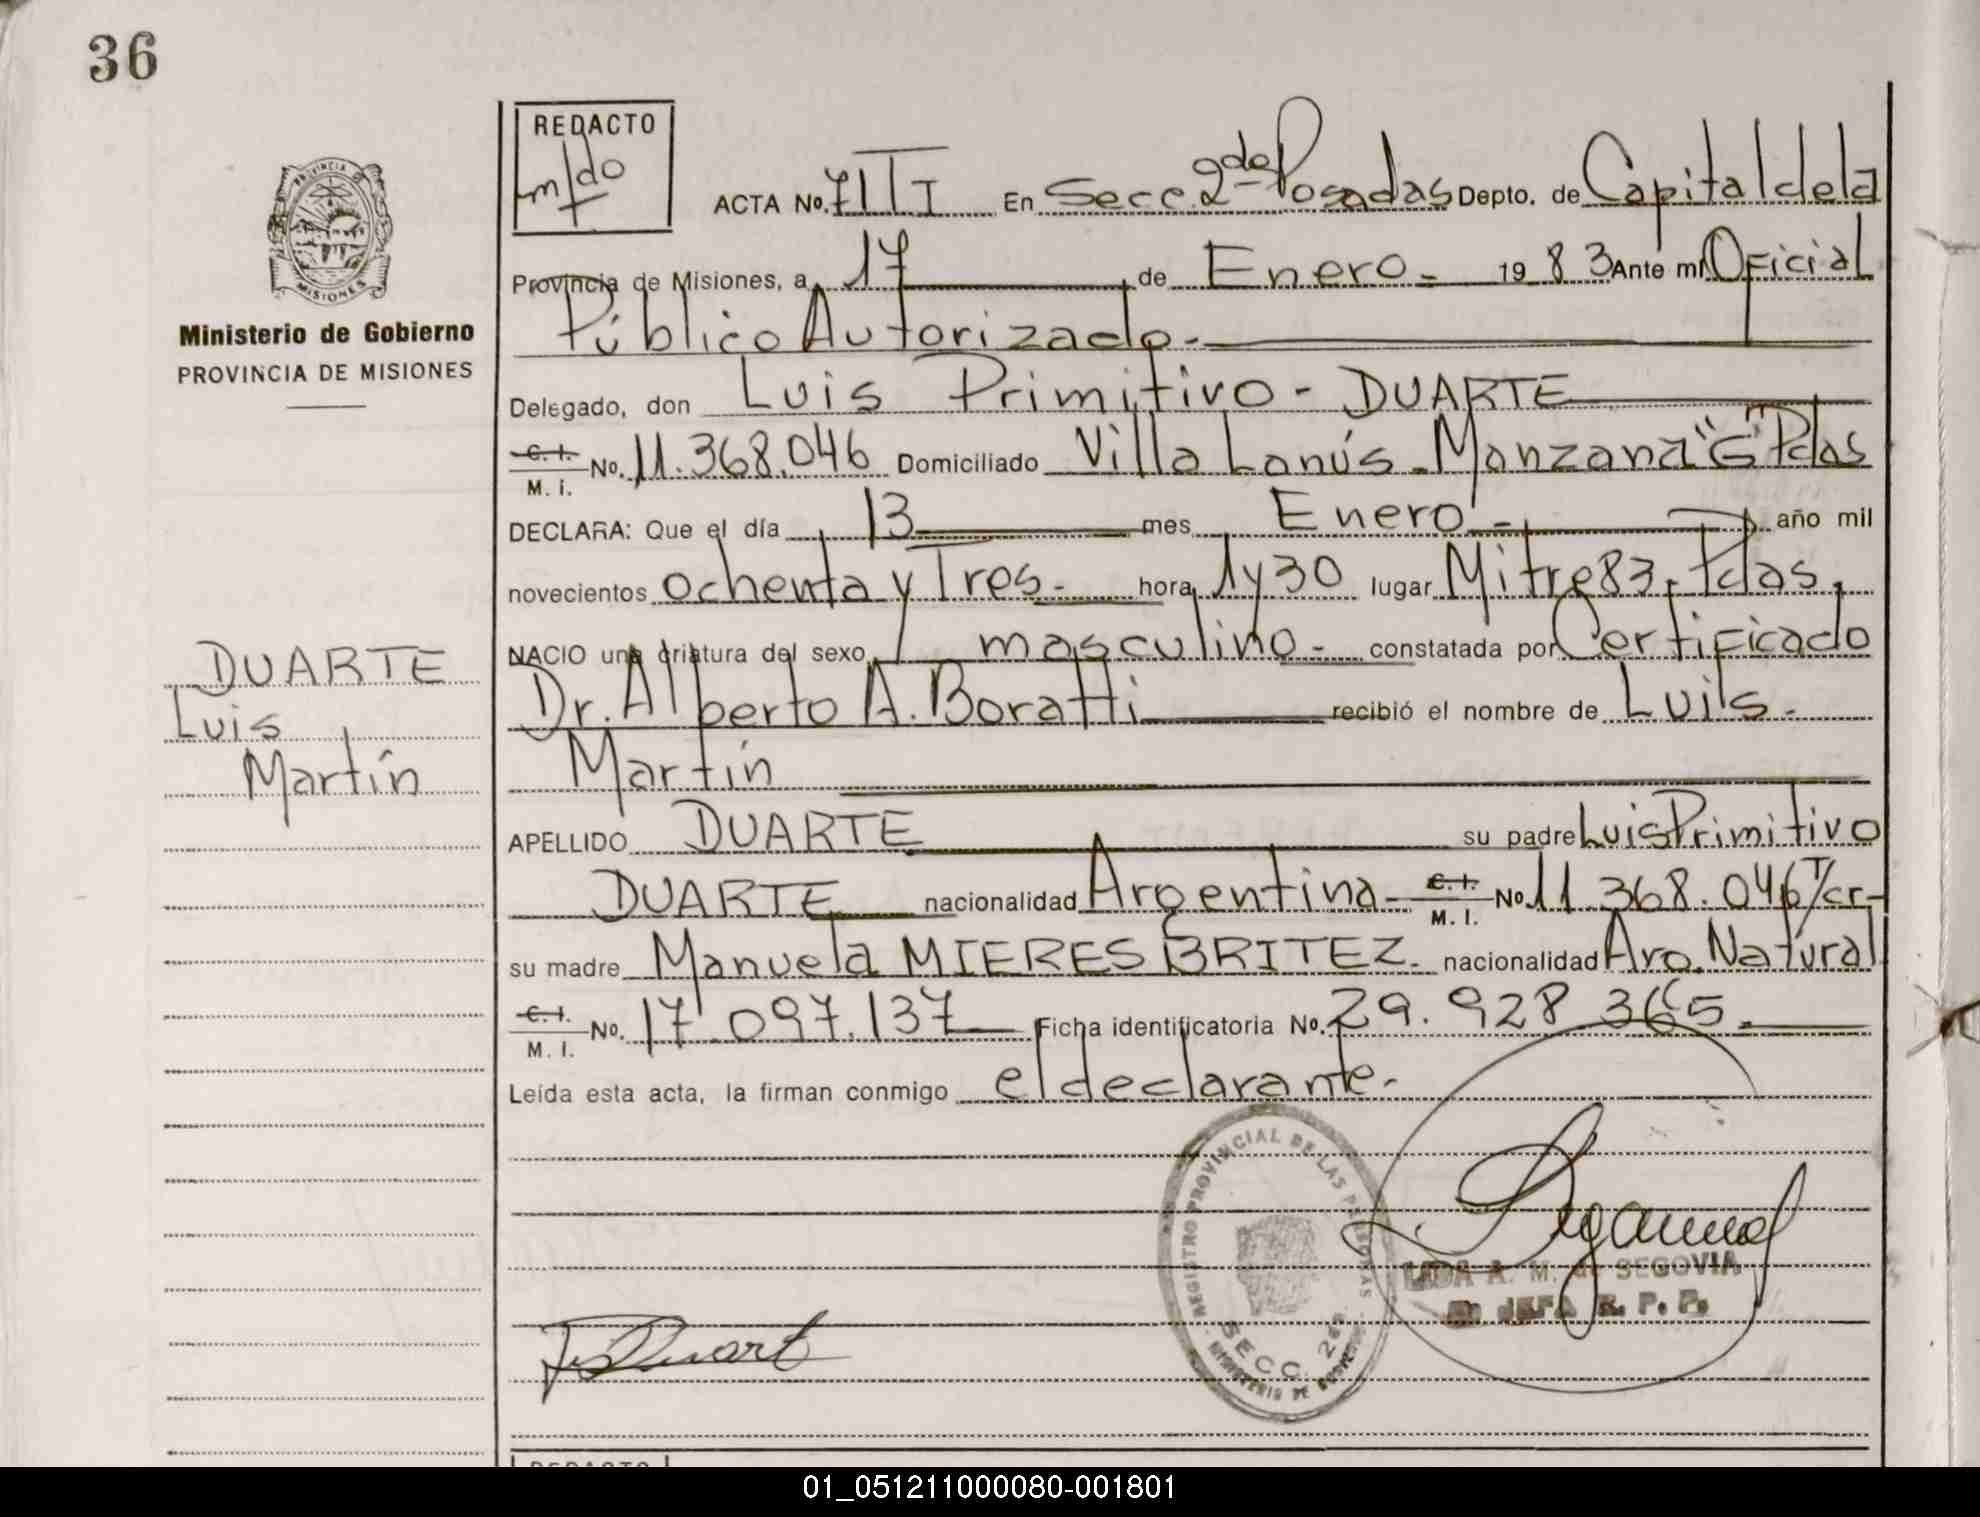 36
REDACTO
m/do
ACTA No. 71 T I En Secc. 2da Posadas Depto. de Capital de la
PROVINCIA
MISIONES
Ministerio de Gobierno
PROVINCIA DE MISIONES
Provincia de Misiones, a 17 de Enero.- 19 83 Ante mí Oficial
Público Autorizado.-
Delegado, don Luis Primitivo - DUARTE
C. I. M. I. No. 11.368.046 Domiciliado Villa Lanús - Manzana "G" Pdas
DECLARA: Que el día 13 mes Enero - año mil
novecientos ochenta y Tres.- hora 1 y 30 lugar Mitre 83. Pdas.
NACIO una criatura del sexo masculino.- constatada por Certificado
Dr. Alberto A. Boratti recibió el nombre de Luis.-
Martín
DUARTE
Luis
Martín
APELLIDO DUARTE su padre Luis Primitivo
DUARTE nacionalidad Argentina - C. I. M. I. No. 11.368.046 T/cr-
su madre Manuela MIERES BRITEZ.- nacionalidad Arg. Natural
C. I. M. I. No. 17.097.137 Ficha identificatoria No. 29.928.365.-
Leída esta acta, la firman conmigo el declarante.-
REGISTRO PROVINCIAL DE LAS PERSONAS
SECC. 2da.
MINISTERIO DE GOBIERNO
A. M. de SEGOVIA
JEFA R. P. P.
REDACTO
01_051211000080-001801